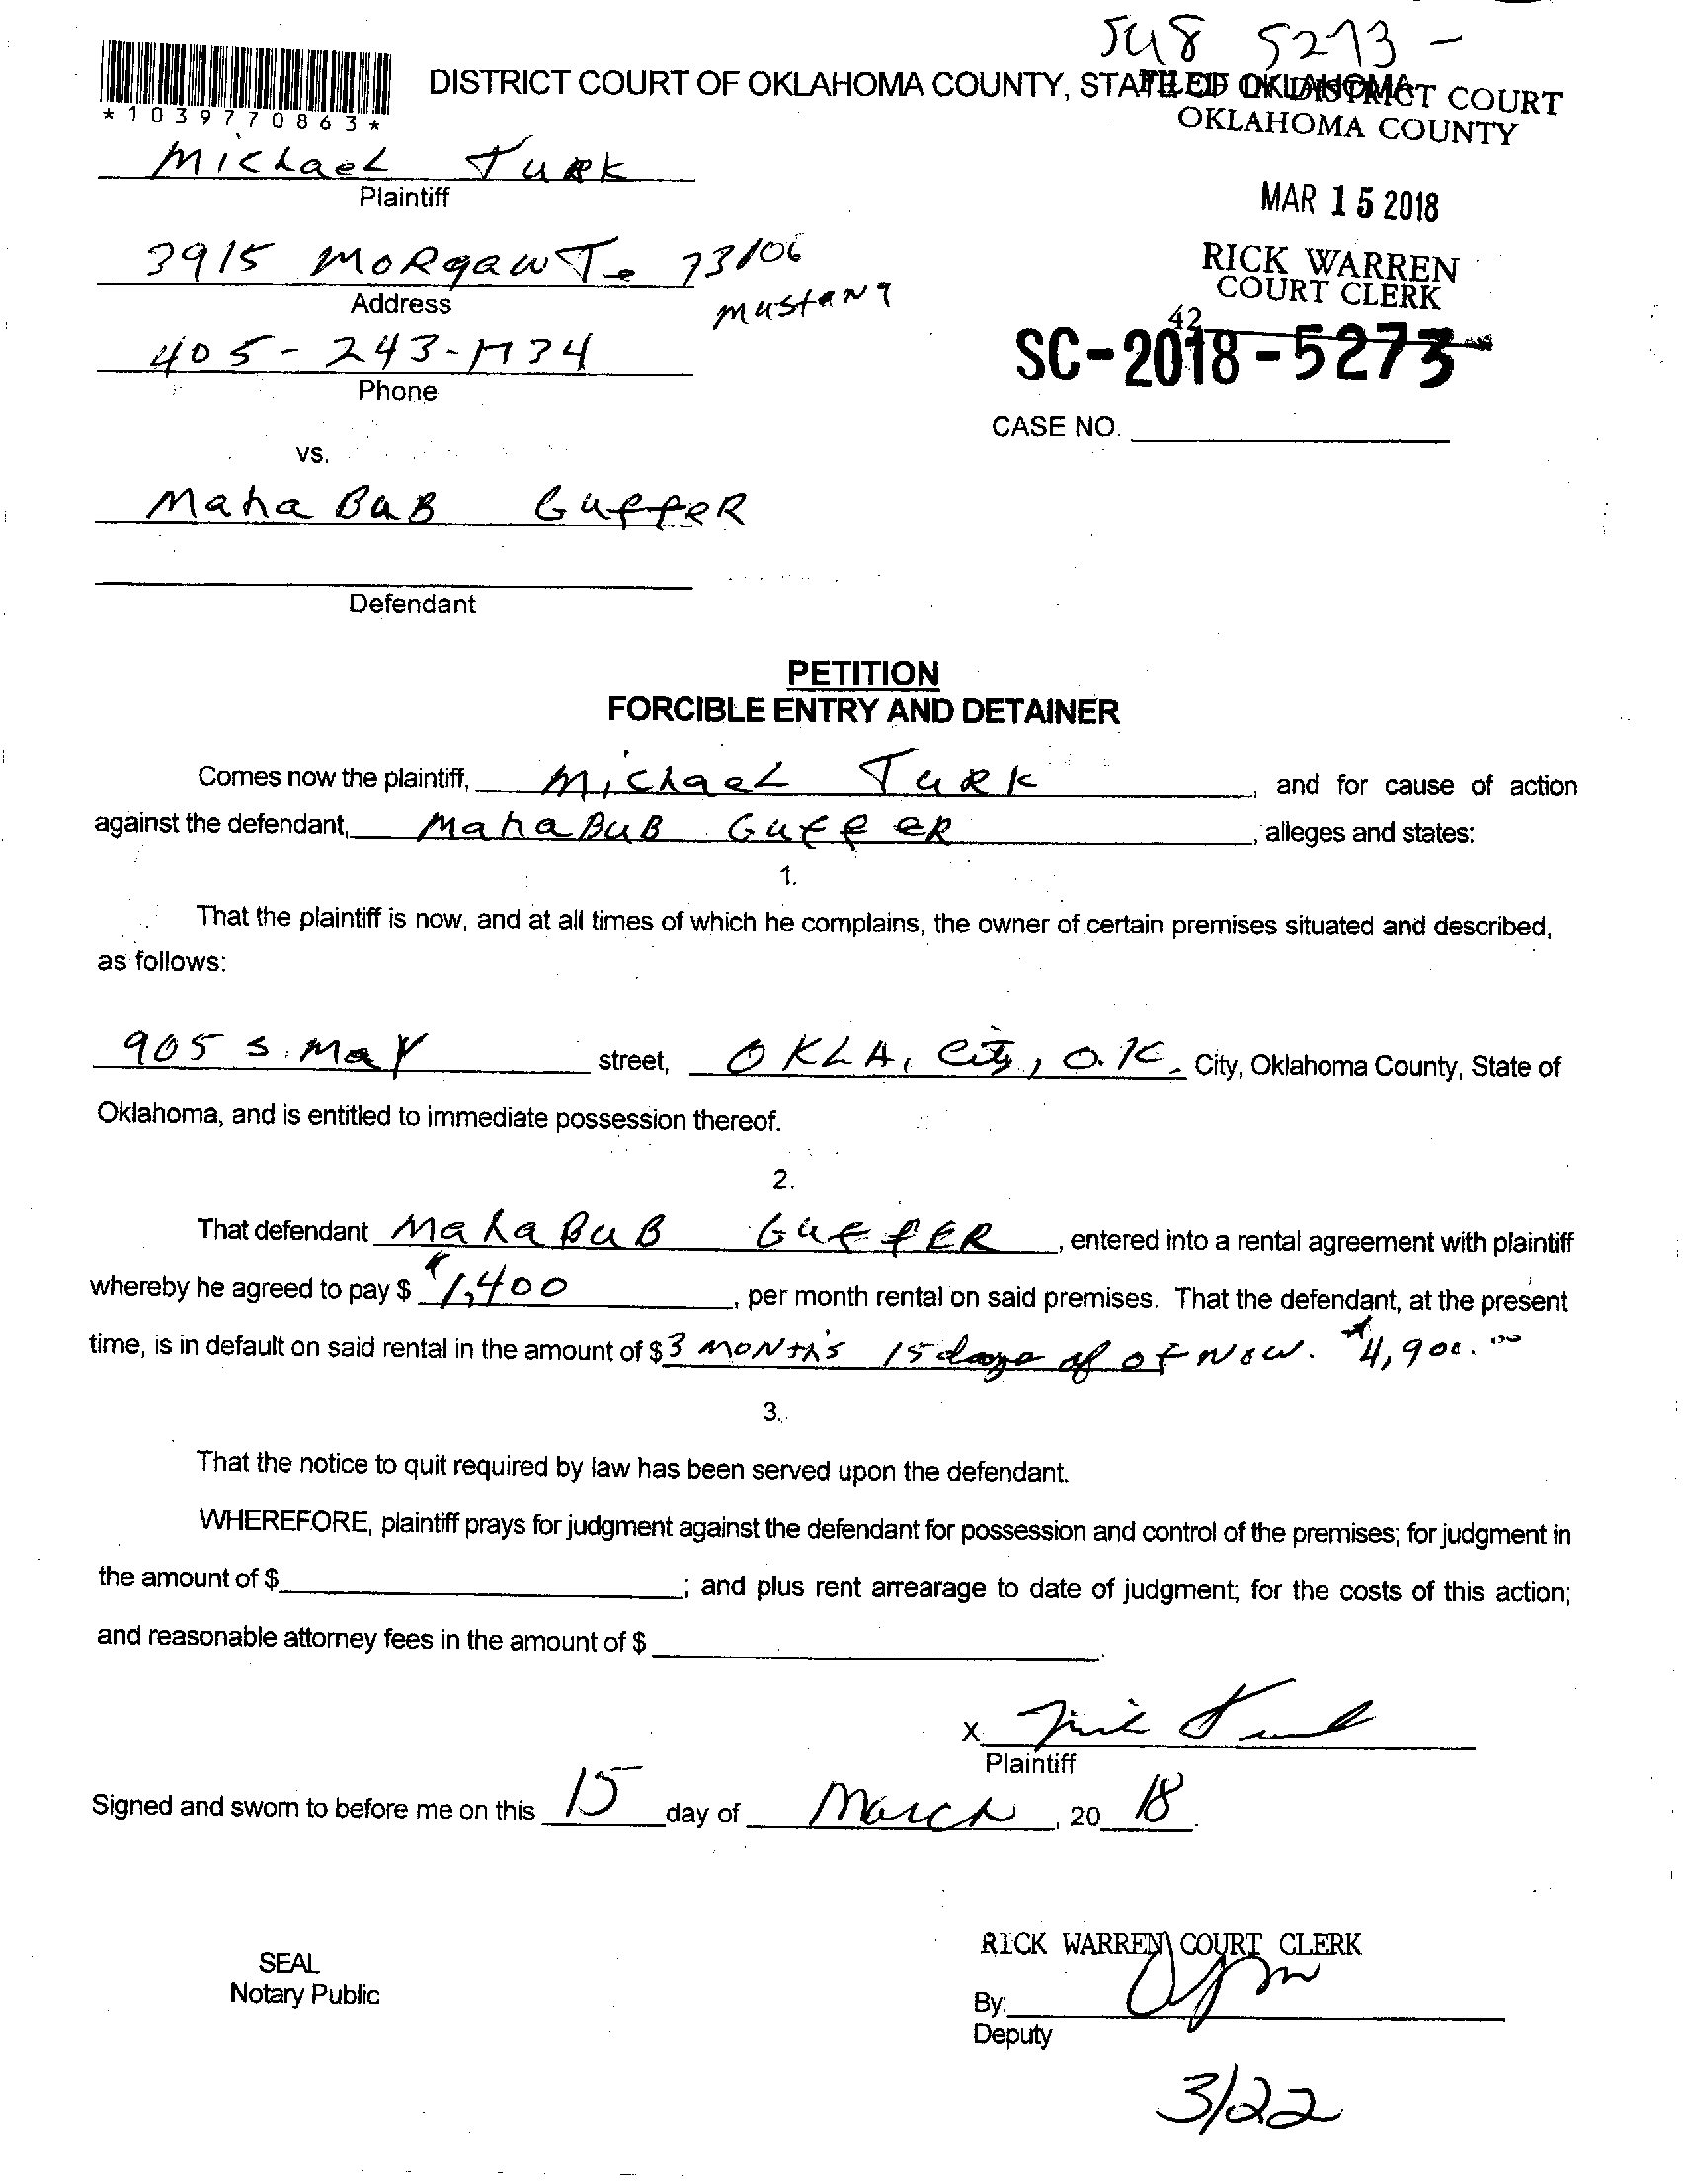 5273 -
DISTRICT COURT OF OKLAHOMA COUNTY, STATE OF OKLAHOMA
FILED IN DISTRICT COURT
OKLAHOMA COUNTY
*1039770863*
Michael Turk
Plaintiff
MAR 15 2018
3915 Morgan Te 73106
Mustang
Address
RICK WARREN
COURT CLERK
42
405-243-1734
Phone
SC-2018-5273
CASE NO.
vs.
MahaBuB GuffeR
Defendant
PETITION
FORCIBLE ENTRY AND DETAINER
Comes now the plaintiff, Michael Turk, and for cause of action
against the defendant, MahaBuB GuffeR, alleges and states:
1.
That the plaintiff is now, and at all times of which he complains, the owner of certain premises situated and described,
as follows:
905 S. May street, OKLA, City, O.K. City, Oklahoma County, State of
Oklahoma, and is entitled to immediate possession thereof.
2.
That defendant MahaBuB GuffER, entered into a rental agreement with plaintiff
whereby he agreed to pay $ $1,400, per month rental on said premises. That the defendant, at the present
time, is in default on said rental in the amount of $ 3 months 15 days of of Now. $4,900.00
3.
That the notice to quit required by law has been served upon the defendant.
WHEREFORE, plaintiff prays for judgment against the defendant for possession and control of the premises; for judgment in
the amount of $ ; and plus rent arrearage to date of judgment; for the costs of this action;
and reasonable attorney fees in the amount of $ .
X
Plaintiff
Signed and sworn to before me on this 15 day of March, 20 18.
RICK WARREN COURT CLERK
SEAL
Notary Public
By:
Deputy
3/22